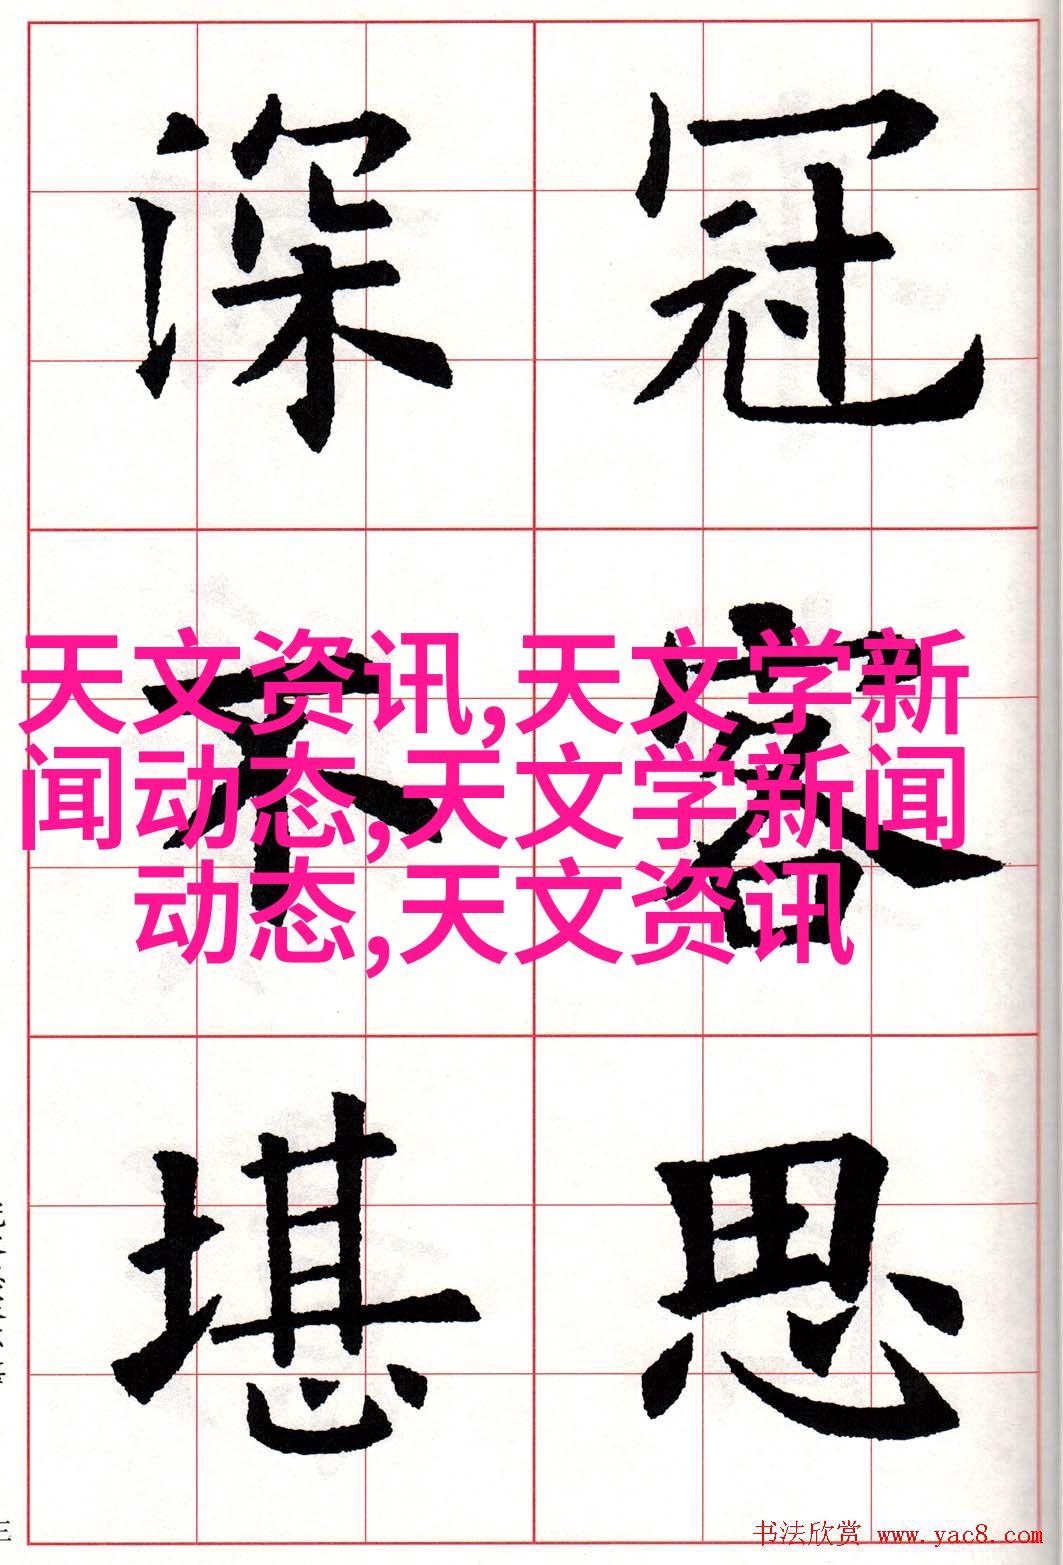 冠容思
深不堪
天文资讯,天文学新
闻动态,天文学新闻
动态,天文资讯
书法欣赏 www.yac8.com